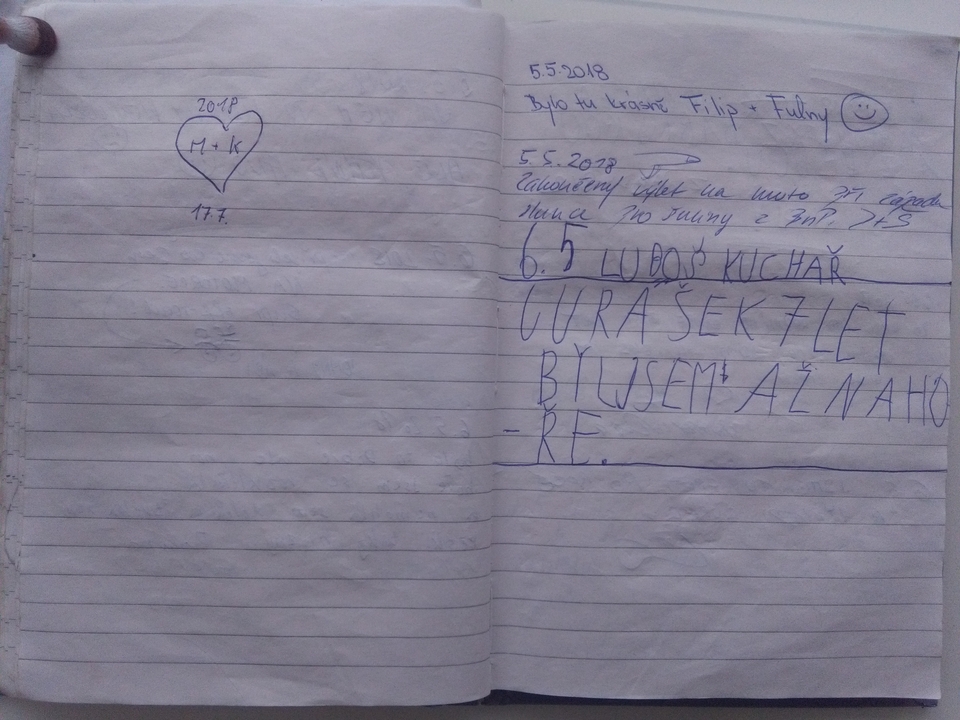 2018
M + K
17.7.
5.5.2018
Bylo tu krásně Filip + Fuliny
5.5.2018
Zakončený výlet na moto při západu
6.5 LUBOŠ KUCHAŘ
LURAŠEK 7 LET
BYL JSEM AŽ NAHO
-ŘE.